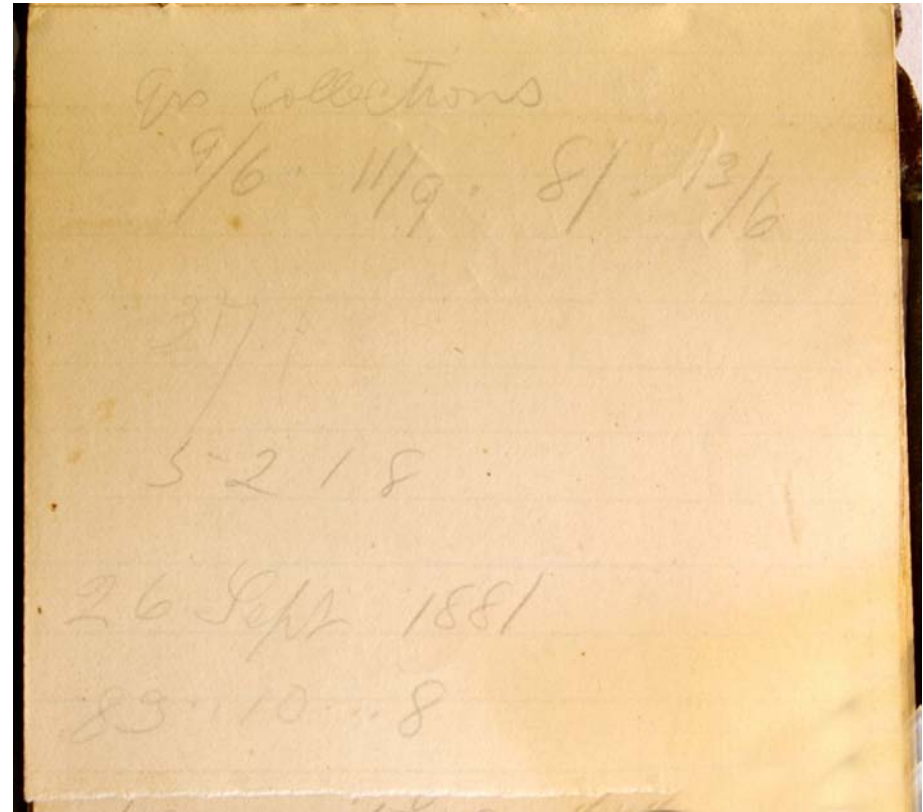 Qrs Collections
9/6 · 11/9 · 8/ · 13/6
37/
5 2 1 8
26 Sept 1881
89 .. 10 ... 8